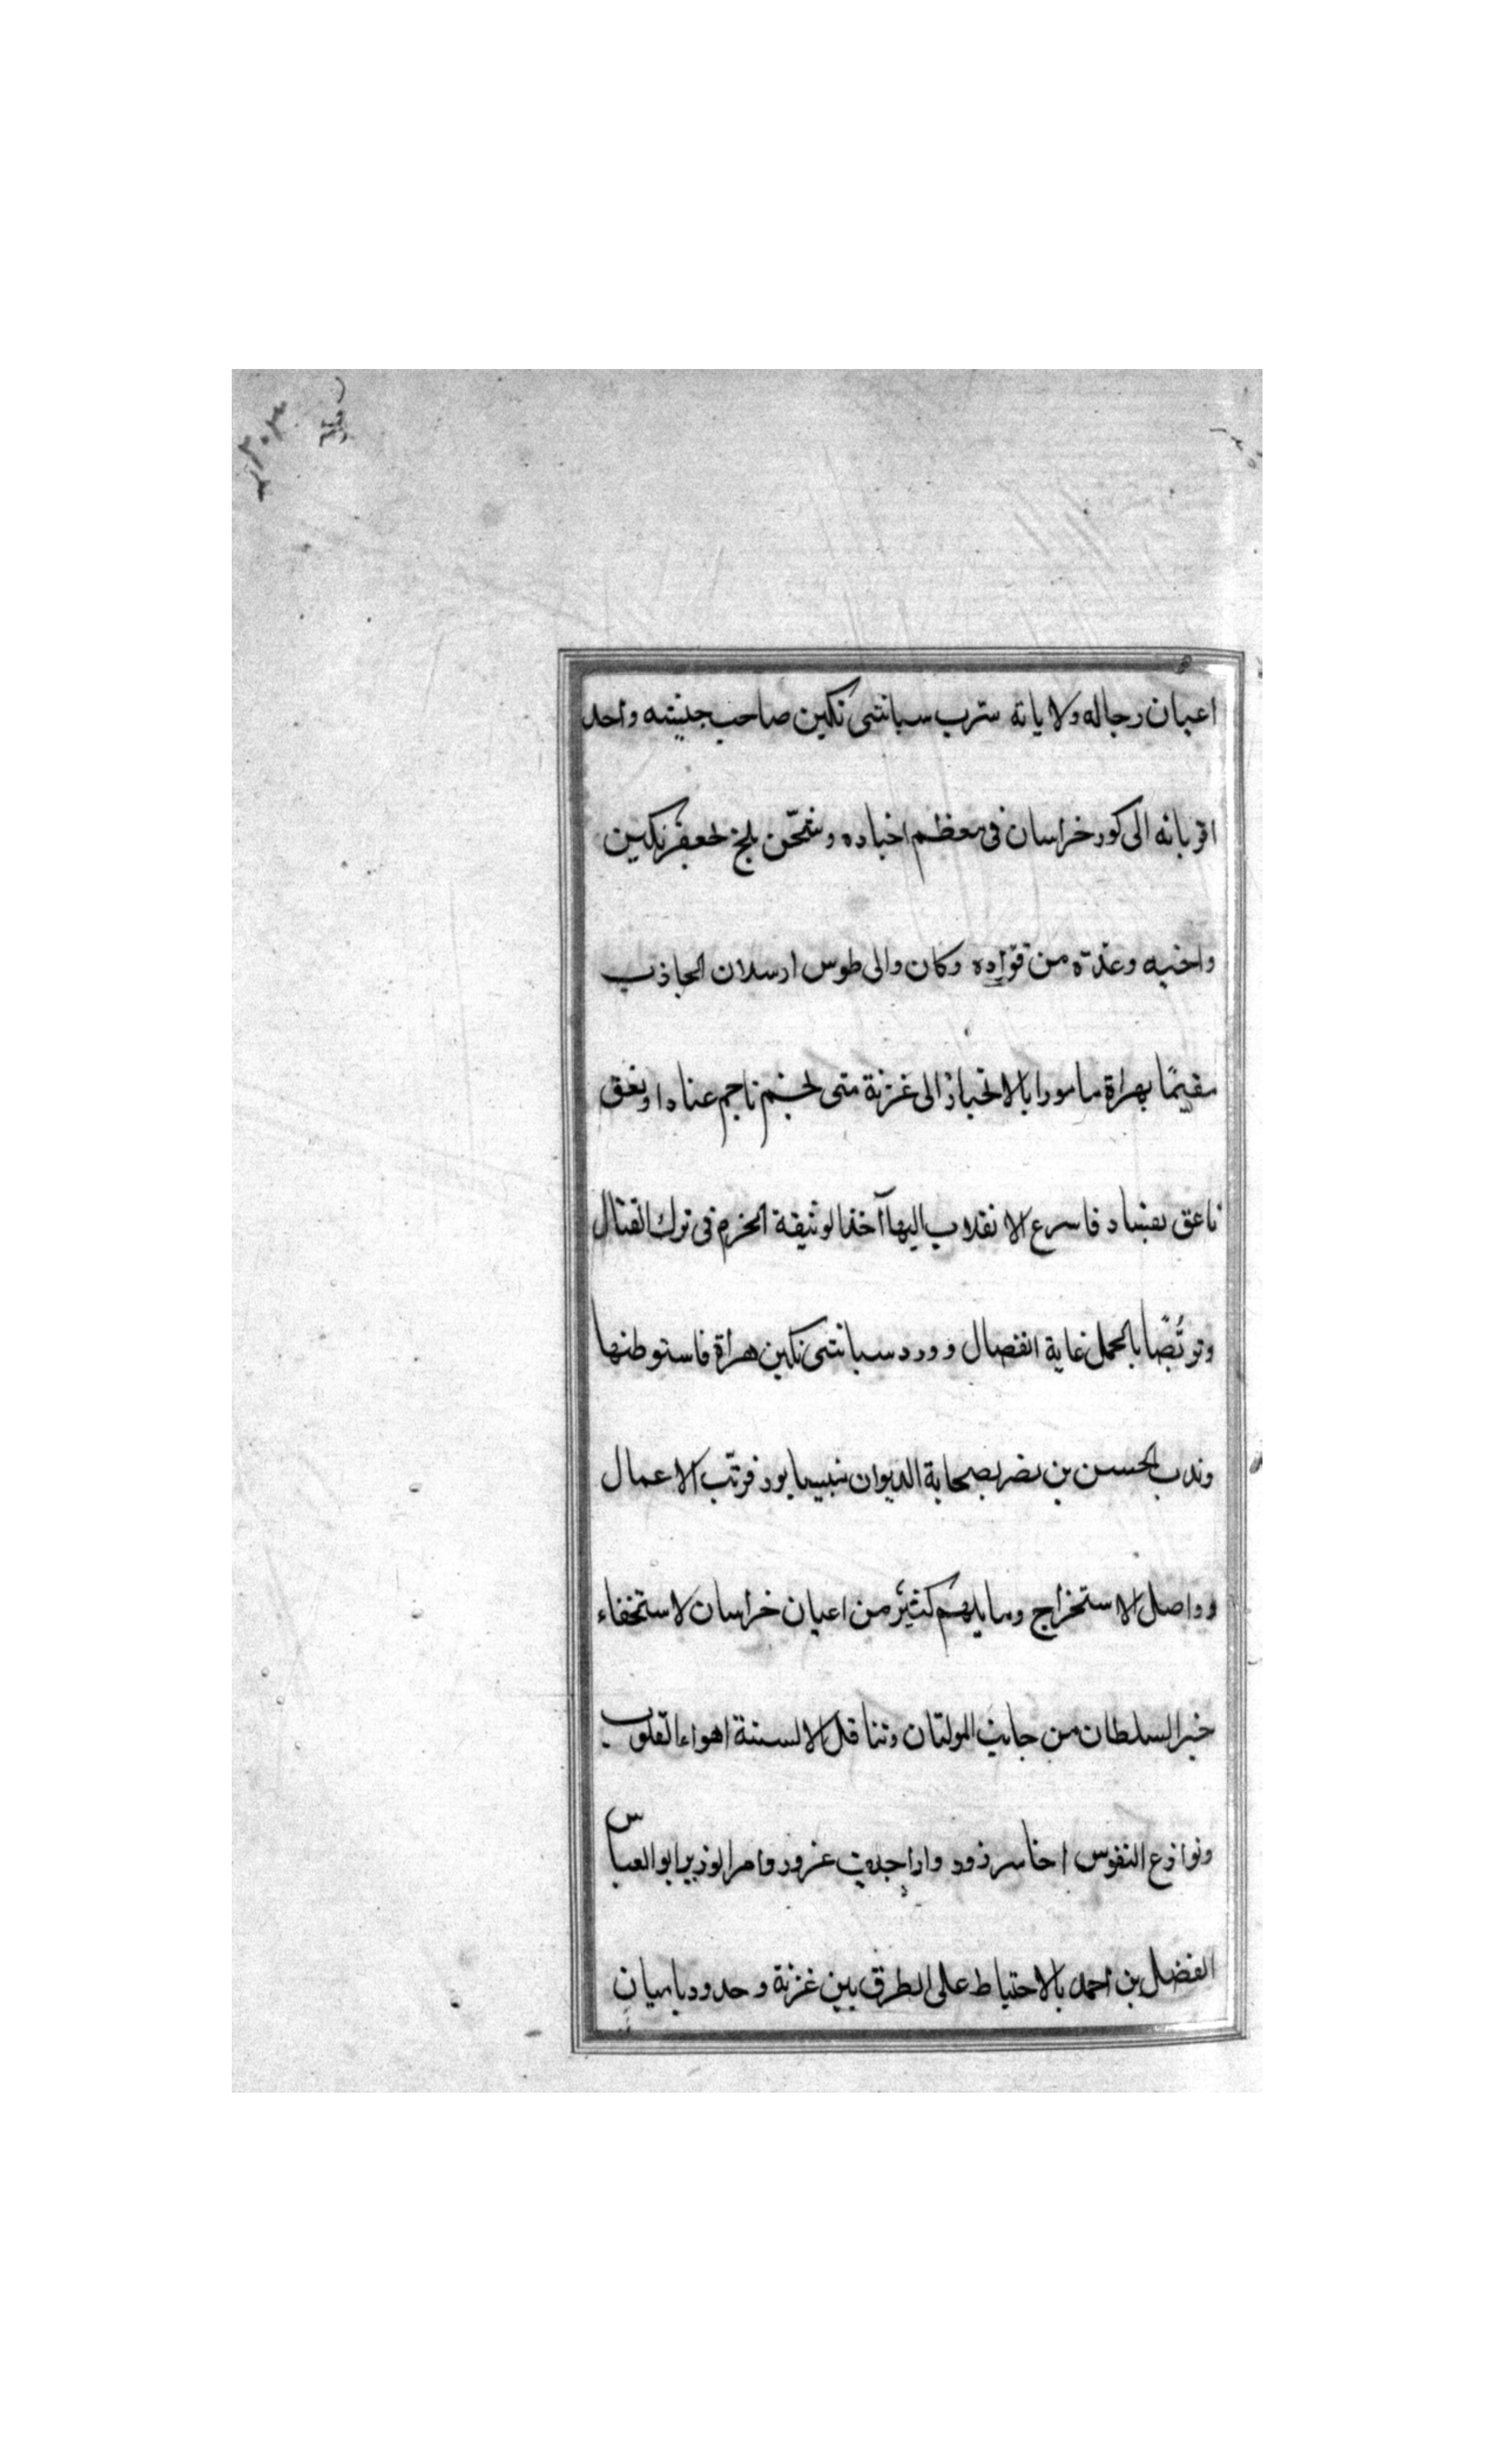 اعيان رجاله ولاياته سرب سباشى تكين صاحب جيشه واحد
اقربائه الى كور خراسان فى معظم اجناده وشحّن بلخ لجعفر تكين
واخيه وعدّة من قوّاده وكان والى طوس ارسلان الجاذب
مقيمًا بهراة مامورا بالانحياز الى غزنة متى نجم ناجم عناد او نعق
ناعق بفساد فاسرع الانقلاب اليها آخذا لوثيقة الحزم فى ترك القتال
وتربّصًا بالحمل غاية الفصال وورد سباشى تكين هراة فاستوطنها
وندب الحسن بن نصر بصحابة الديوان نيسابور فرتّب الاعمال
وواصل الاستخراج ومايلهم كثير من اعيان خراسان لاستخفاء
خبر السلطان من جانب المولتان وتناقل الالسنة اهواء القلوب
ونوازع النفوس اخاسر زور واراجيف غرور وامر الوزير ابو العباس
الفضل بن احمد بالاحتياط على الطرق بين غزنة وحدود باميان